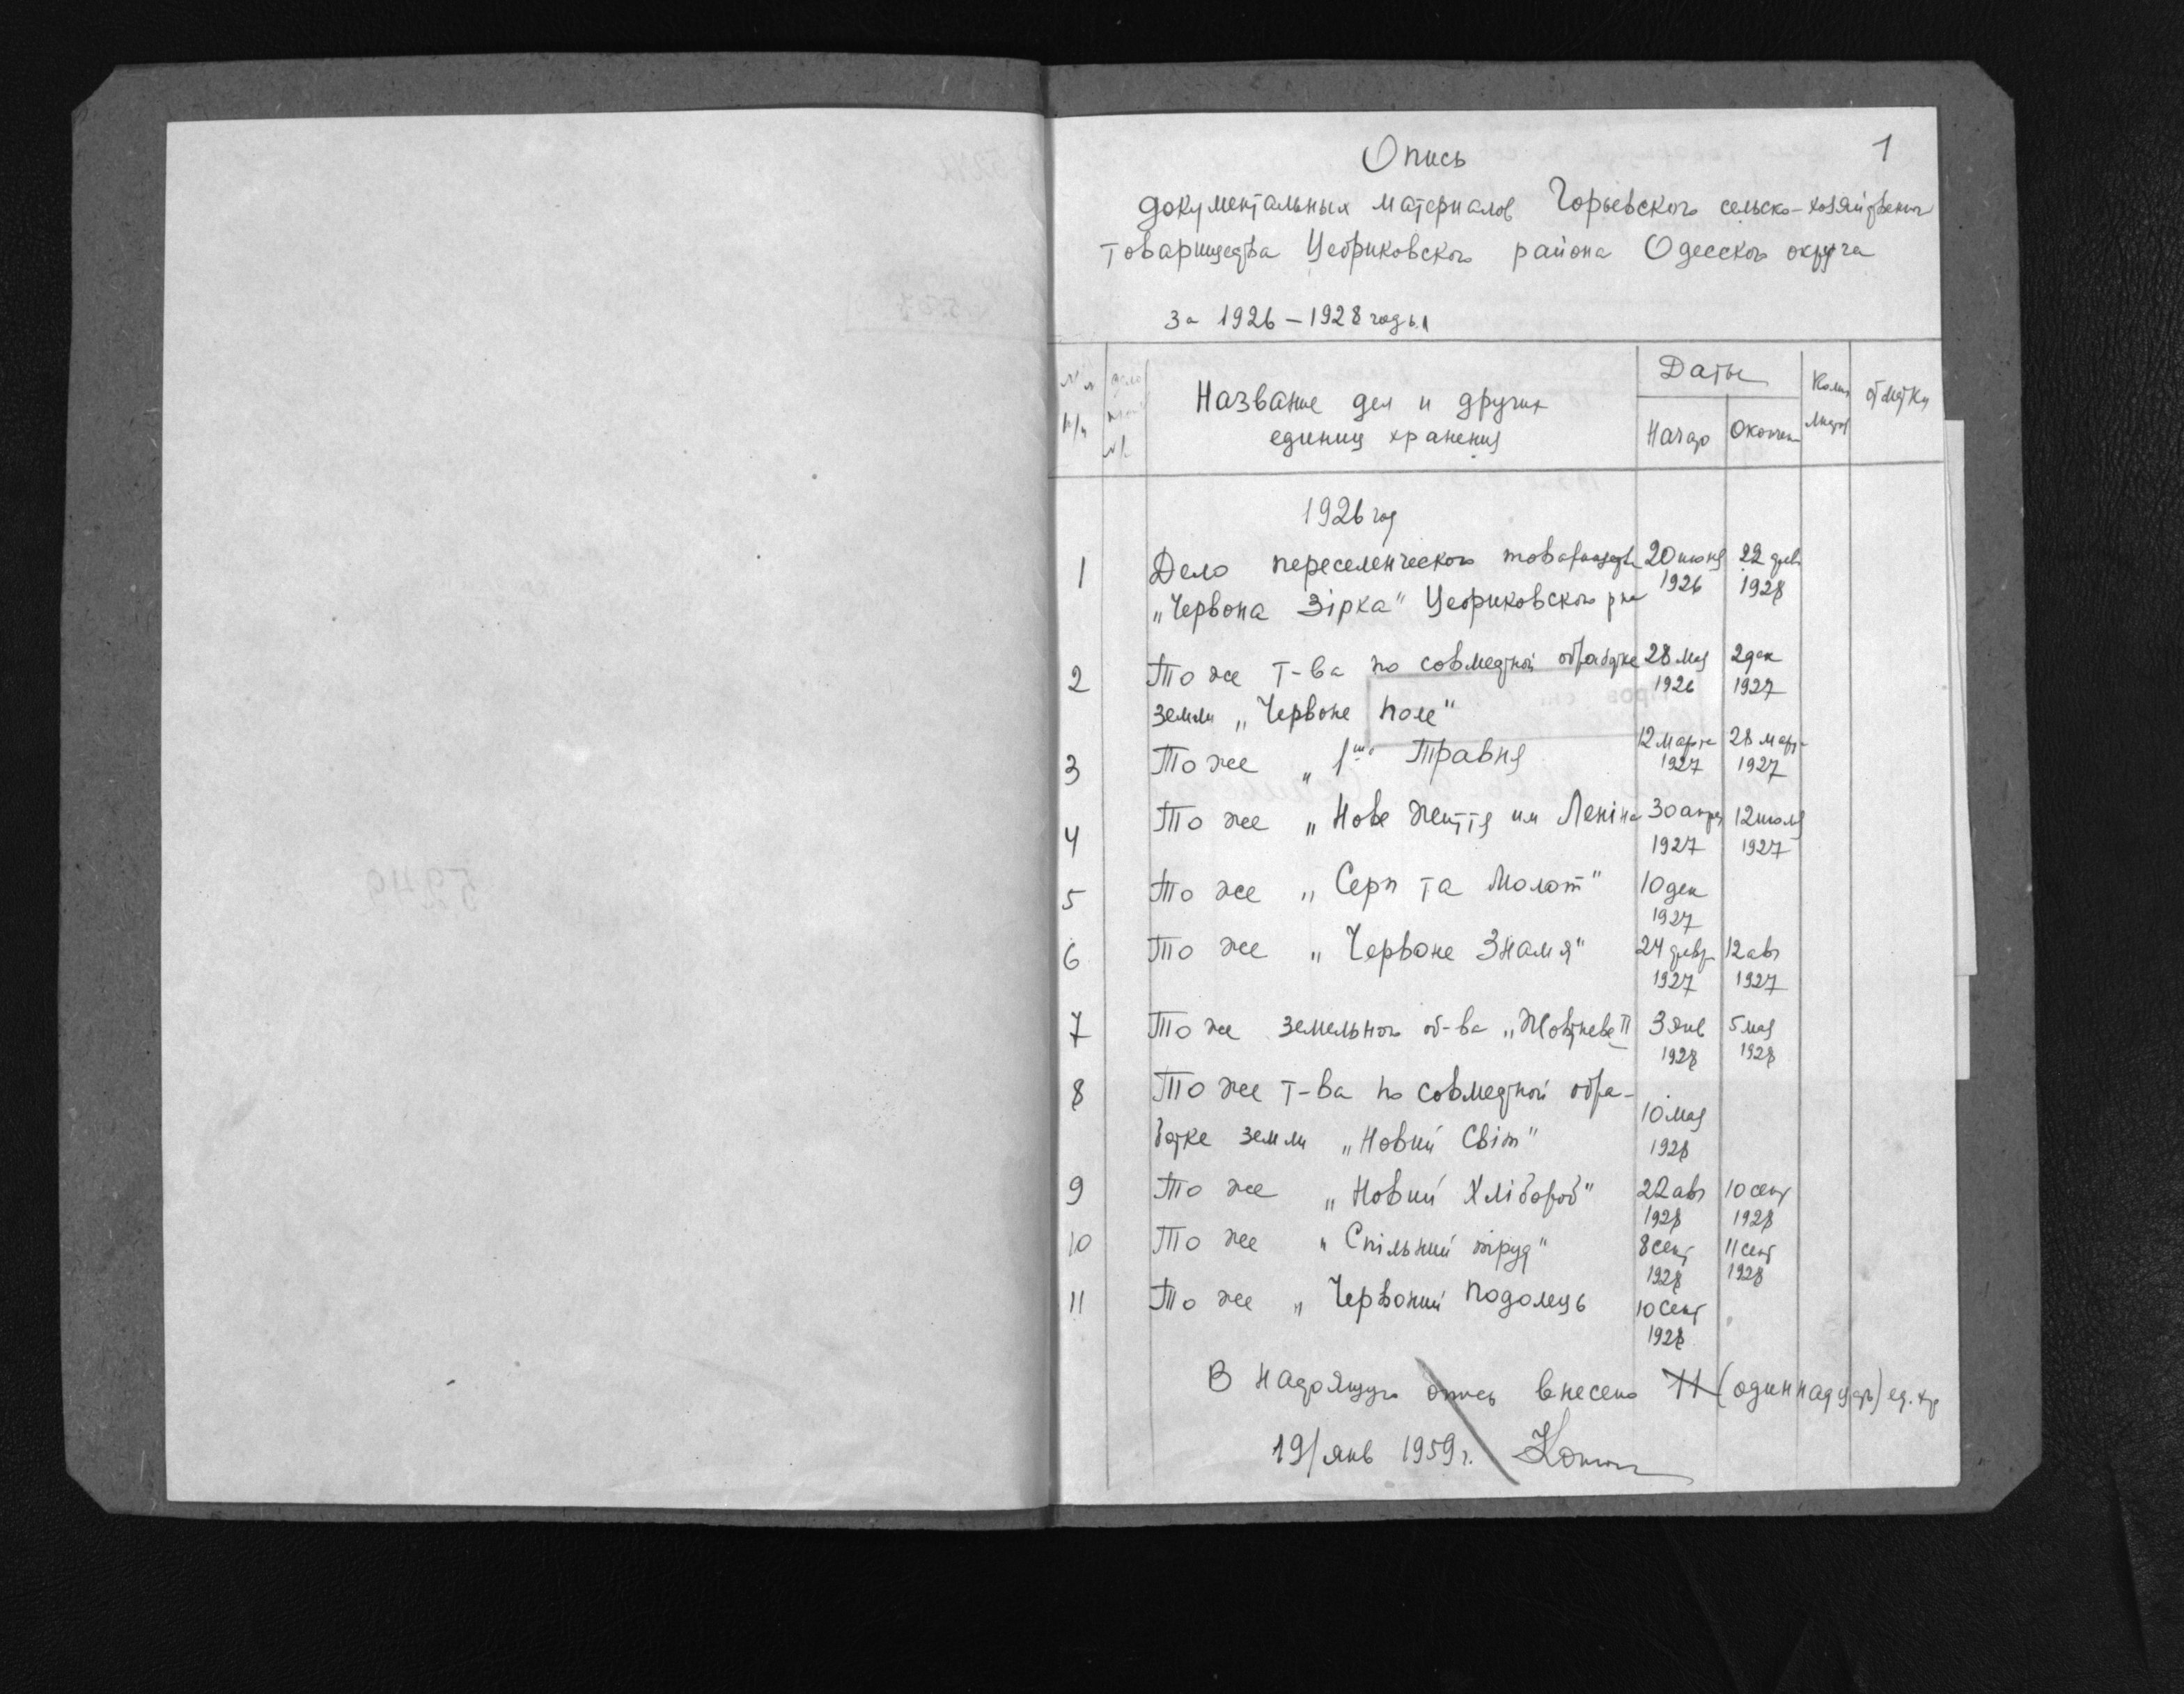 1
Опись
документальных материалов Горьевского сельско-хозяйственного
товарищества Цебриковского района Одесского округа
за 1926 – 1928 годы
№№ п/п
Название дел и других единиц хранения
Даты
Начало
Окончен
Колич листов
отметки
1926 год
1 Дело переселенческого товарищества 20 июня 1926 22 февр 1928
„Червона Зірка" Цебриковского р-на
2 То же т-ва по совместной обработке 28 мая 1926 2 дек 1927
земли „Червоне Поле"
3 То же „1го Травня 12 марта 1927 28 марта 1927
4 То же „Нове життя им Леніна 30 апреля 1927 12 июля 1927
5 То же „Серп та Молот" 10 дек 1927
6 То же „Червоне Знамя" 24 февр 1927 12 авг 1927
7 То же земельного об-ва „Жовтневе II 3 янв 1928 5 мая 1928
8 То же т-ва по совместной обра-
ботке земли „Новий Світ" 10 мая 1928
9 То же „Новий Хлібороб" 22 авг 1928 10 сент 1928
10 То же „Спільний труд" 8 сент 1928 11 сент 1928
11 То же „Червоний Подолець 10 сент 1928
В настоящую опись внесено 11 (одиннадцать) ед. хр
19/янв 1959 г.
5249